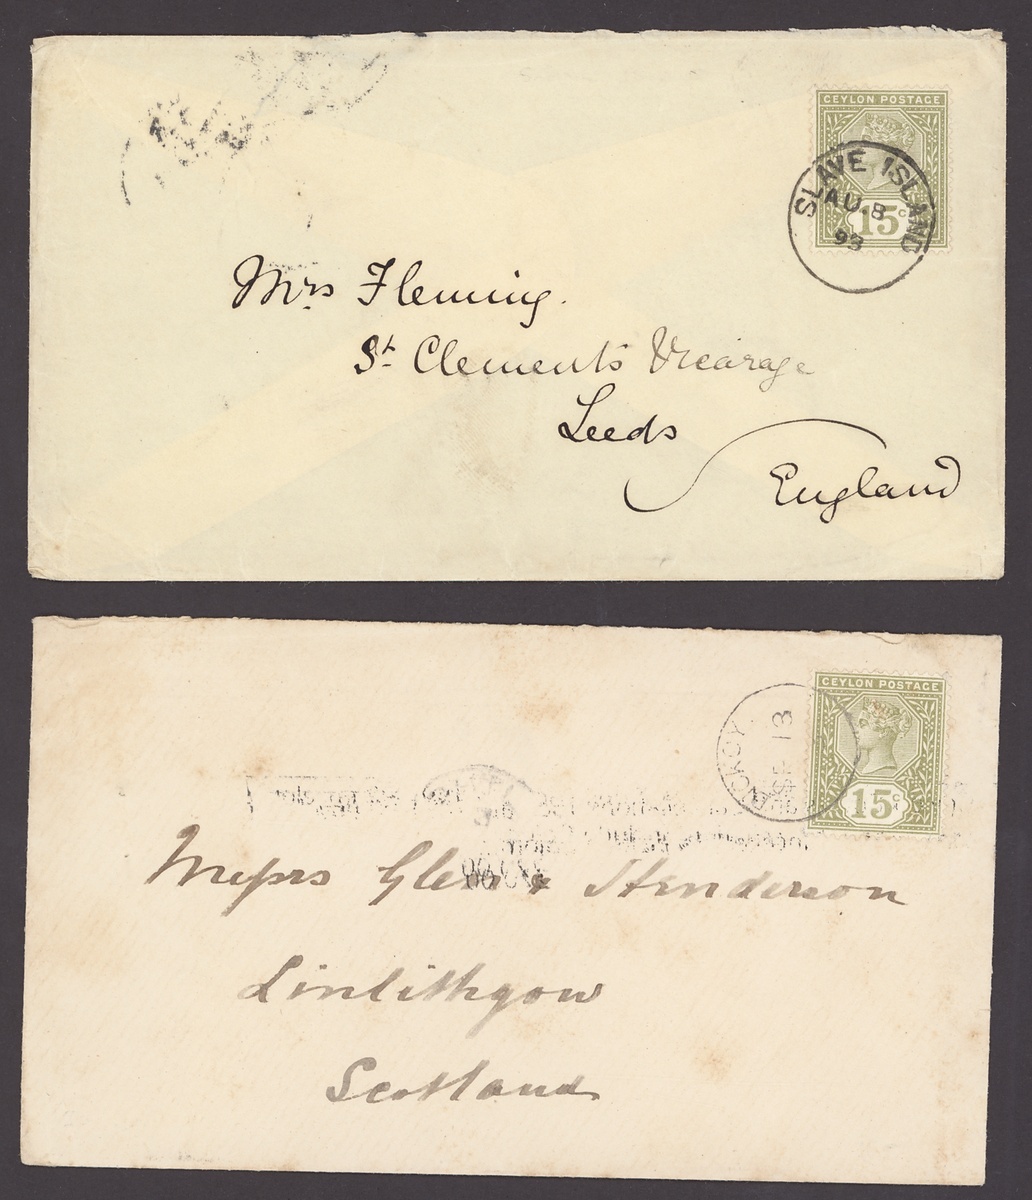 CEYLON POSTAGE
SLAVE ISLAND
AU 8
93
15 C
Mrs Fleming.
St Clements Vicarage
Leeds
England
CEYLON POSTAGE
SE 13
15 C
Messrs Glen & Henderson
Linlithgow
Scotland